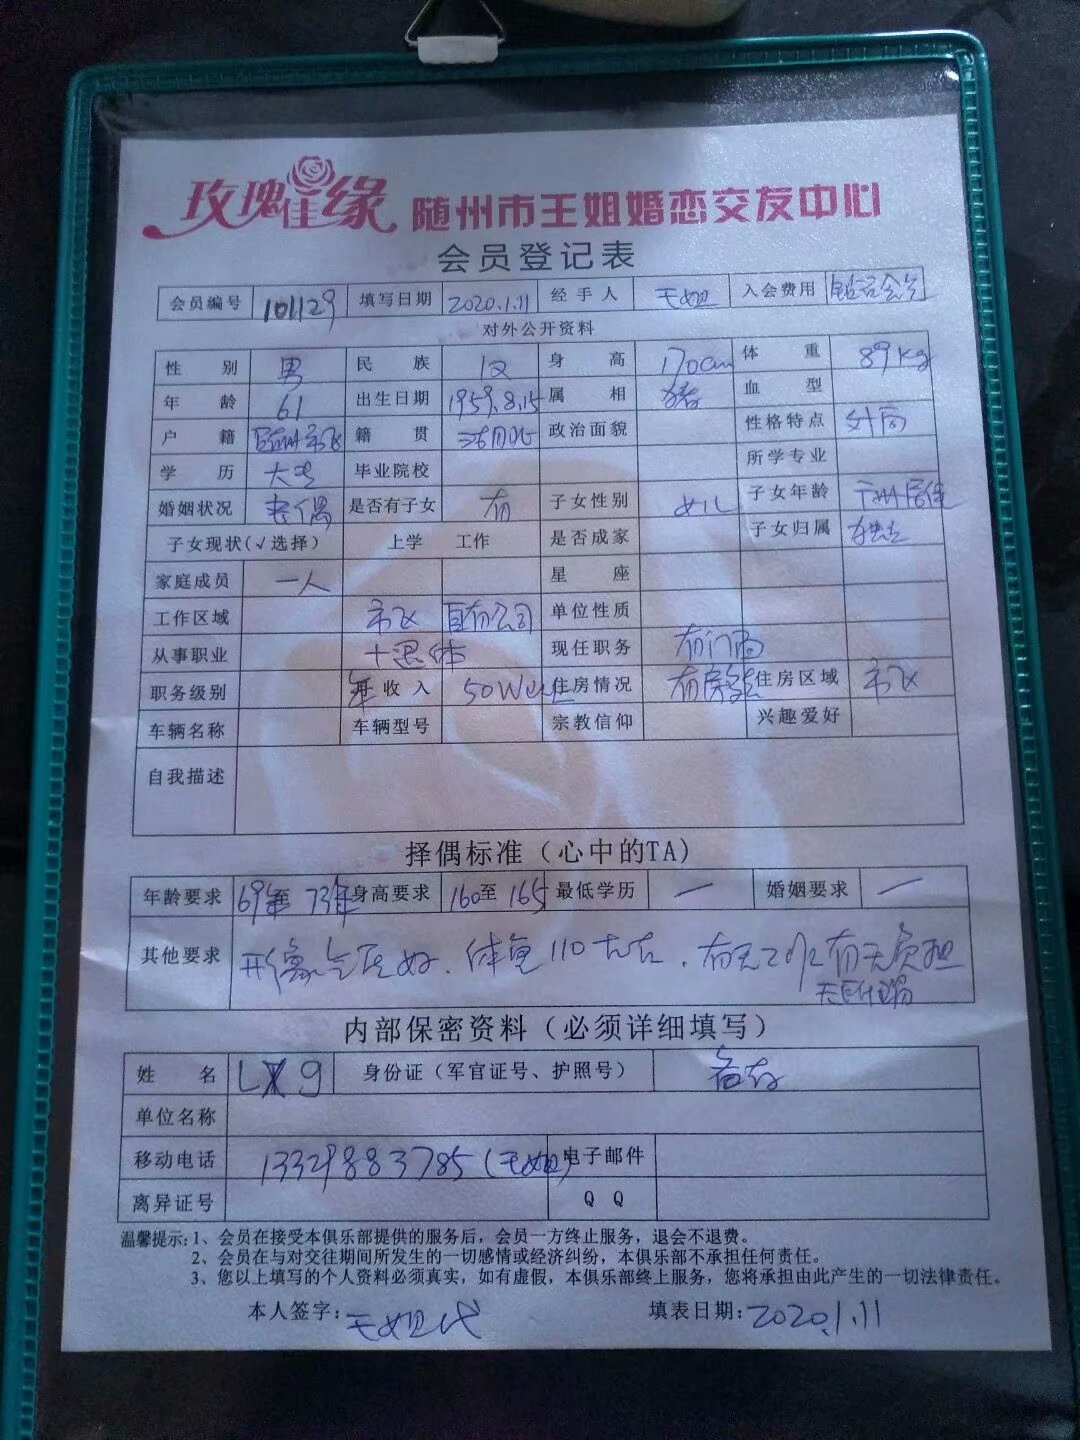 玫瑰佳缘 随州市王姐婚恋交友中心
会员登记表
会员编号 101129 填写日期 2020.1.11 经手人 王姐 入会费用 钻石会员
对外公开资料
性别 男 民族 汉 身高 170cm 体重 89kg
年龄 61 出生日期 1959.8.15 属相 猪 血型
户籍 随州市区 籍贯 湖北 政治面貌 性格特点 外向
学历 大专 毕业院校 所学专业
婚姻状况 丧偶 是否有子女 有 子女性别 女儿 子女年龄
子女现状(√选择) 上学 工作 是否成家 子女归属 独立
家庭成员 一人 星座
工作区域 市区 自有公司 单位性质
从事职业 个思体 现任职务 有门面
职务级别 年收入 50W 住房情况 有房 住房区域 市区
车辆名称 车辆型号 宗教信仰 兴趣爱好
自我描述
择偶标准（心中的TA）
年龄要求 69年至 73年 身高要求 160至 165 最低学历 一 婚姻要求 一
其他要求 形象气质好.体重110左右.有无工作 有无负担
内部保密资料（必须详细填写）
姓名 身份证（军官证号、护照号） 备存
单位名称
移动电话 13329883785(王姐) 电子邮件
离异证号 QQ
温馨提示: 1、会员在接受本俱乐部提供的服务后，会员一方终止服务，退会不退费。
2、会员在与对交往期间所发生的一切感情或经济纠纷，本俱乐部不承担任何责任。
3、您以上填写的个人资料必须真实，如有虚假，本俱乐部终上服务，您将承担由此产生的一切法律责任。
本人签字: 王姐代 填表日期: 2020.1.11